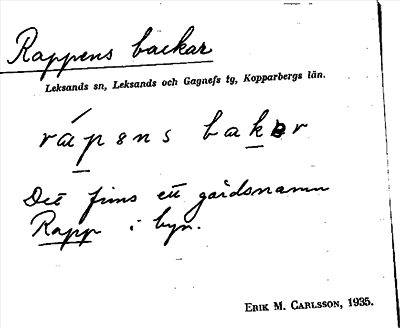 Rappens backar
Leksands sn, Leksands och Gagnefs tg, Kopparbergs län.
rápens bakər
Det finns ett gårdsnamn
Rapp i byn.
ERIK M. CARLSSON, 1935.